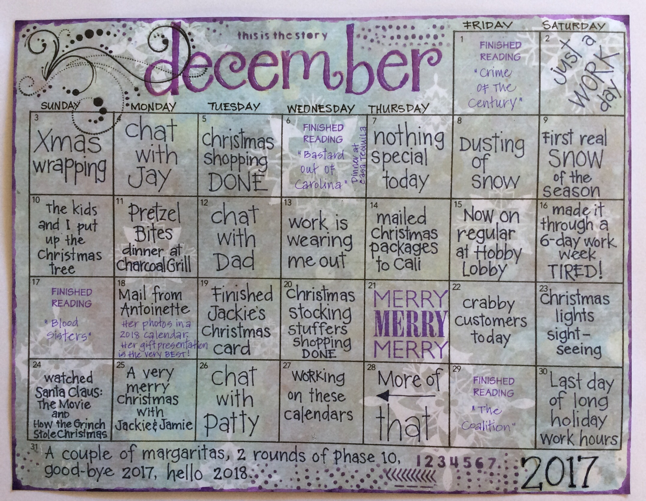 this is the story
december
FRIDAY
SATURDAY
SUNDAY
MONDAY
TUESDAY
WEDNESDAY
THURSDAY
1
FINISHED
READING
"Crime
of the
Century"
2
just a
WORK
day
3
Xmas
wrapping
4
chat
with
Jay
5
christmas
shopping
DONE
6
FINISHED
READING
"Bastard
out of
Carolina"
Dinner at
Casa Tequila
7
nothing
special
today
8
Dusting
of
snow
9
First real
SNOW
of the
season
10
the kids
and I put
up the
Christmas
tree
11
Pretzel
Bites
dinner at
Charcoal Grill
12
chat
with
Dad
13
work is
wearing
me out
14
mailed
Christmas
packages
to Cali
15
Now on
regular
at Hobby
Lobby
16
made it
through a
6-day work
week
TIRED!
17
FINISHED
READING
"Blood
Sisters"
18
Mail from
Antoinette
Her photos in a
2018 calendar;
Her gift presentation
is the very BEST!
19
Finished
Jackie's
Christmas
card
20
Christmas
stocking
stuffers
shopping
DONE
21
MERRY
MERRY
MERRY
22
crabby
customers
today
23
Christmas
lights
sight-
seeing
24
watched
Santa Claus:
The Movie
and
How the Grinch
Stole Christmas
25
A very
merry
Christmas
with
Jackie & Jamie
26
chat
with
Patty
27
WORKING
on these
calendars
28
More of
that
29
FINISHED
READING
"The
Coalition"
30
Last day
of long
holiday
work hours
31
A couple of margaritas, 2 rounds of phase 10,
good-bye 2017, hello 2018.
1234567
2017